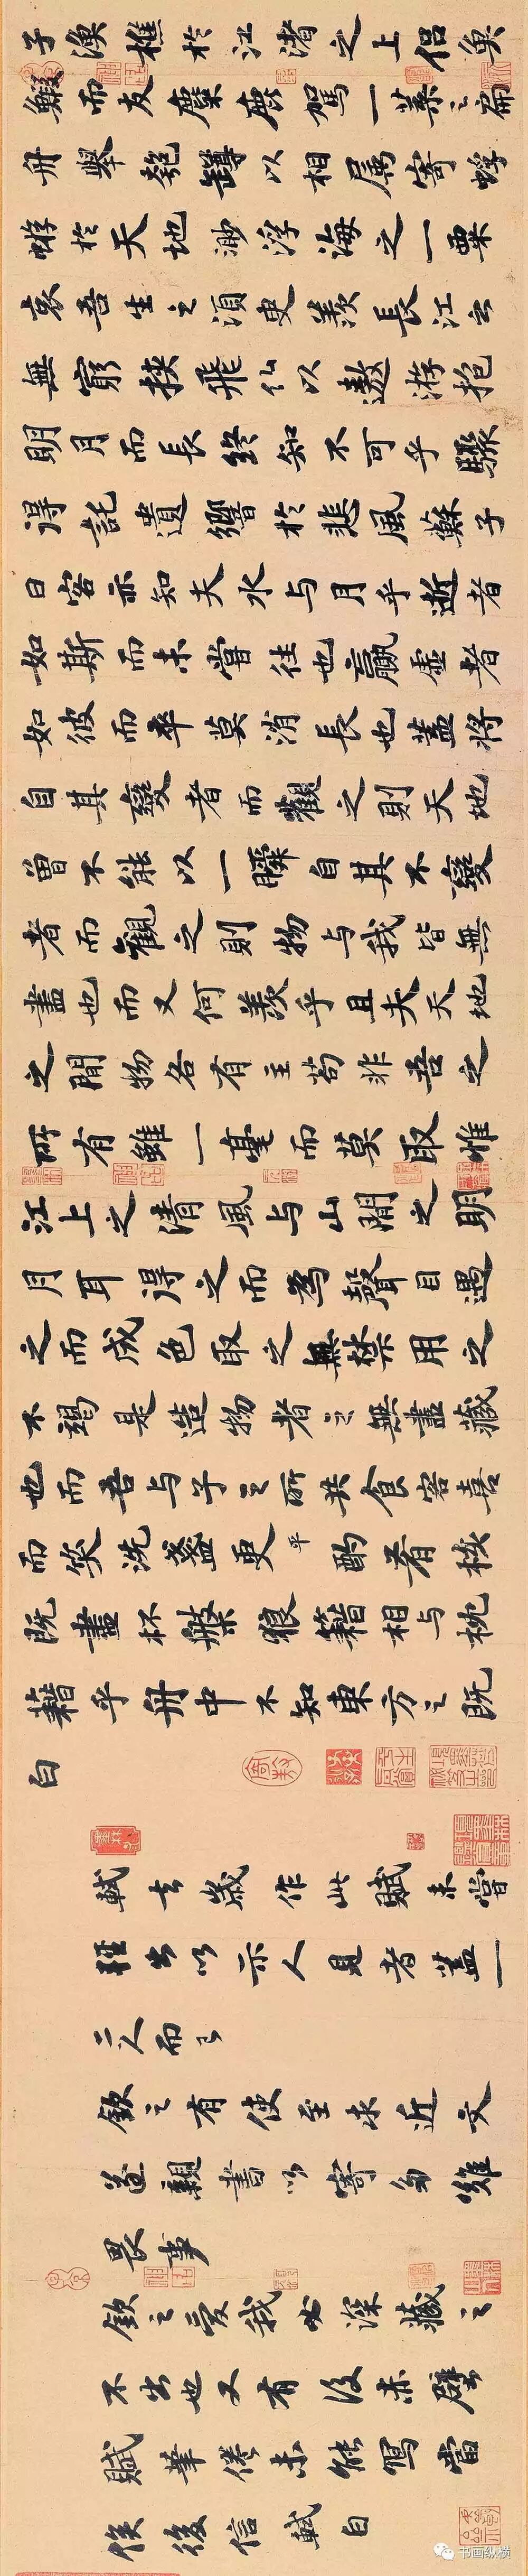 子漁樵於江渚之上侣魚
鰕而友麋鹿駕一葉之扁
舟舉匏罇以相属寄蜉
蝣於天地渺浮海之一粟
哀吾生之須臾羨長江之
無窮挟飛仙以遨游抱
明月而長終知不可乎驟
得託遺響於悲風蘇子
曰客亦知夫水与月乎逝者
如斯而未嘗往也贏虚者
如彼而卒莫消長也蓋将
自其變者而觀之則天地
曾不能以一瞬自其不變
者而觀之則物与我皆無
盡也而又何羨乎且夫天地
之間物各有主苟非吾之
所有雖一毫而莫取惟
江上之清風与山間之明
月耳得之而為聲目遇
之而成色取之無禁用之
不竭是造物者之無盡藏
也而吾与子之所共食客喜
而笑洗盞更平酌肴核
既盡杯盤狼籍相与枕
藉乎舟中不知東方之既
白
軾去歲作此賦未嘗
輕出以示人見者盖一
二人而已
欽之有使至求近文
遂親書以寄多難
畏事
欽之愛我必深藏之
不出也又有後赤壁
賦筆倦未能寫當
俟後信軾白
书画纵横